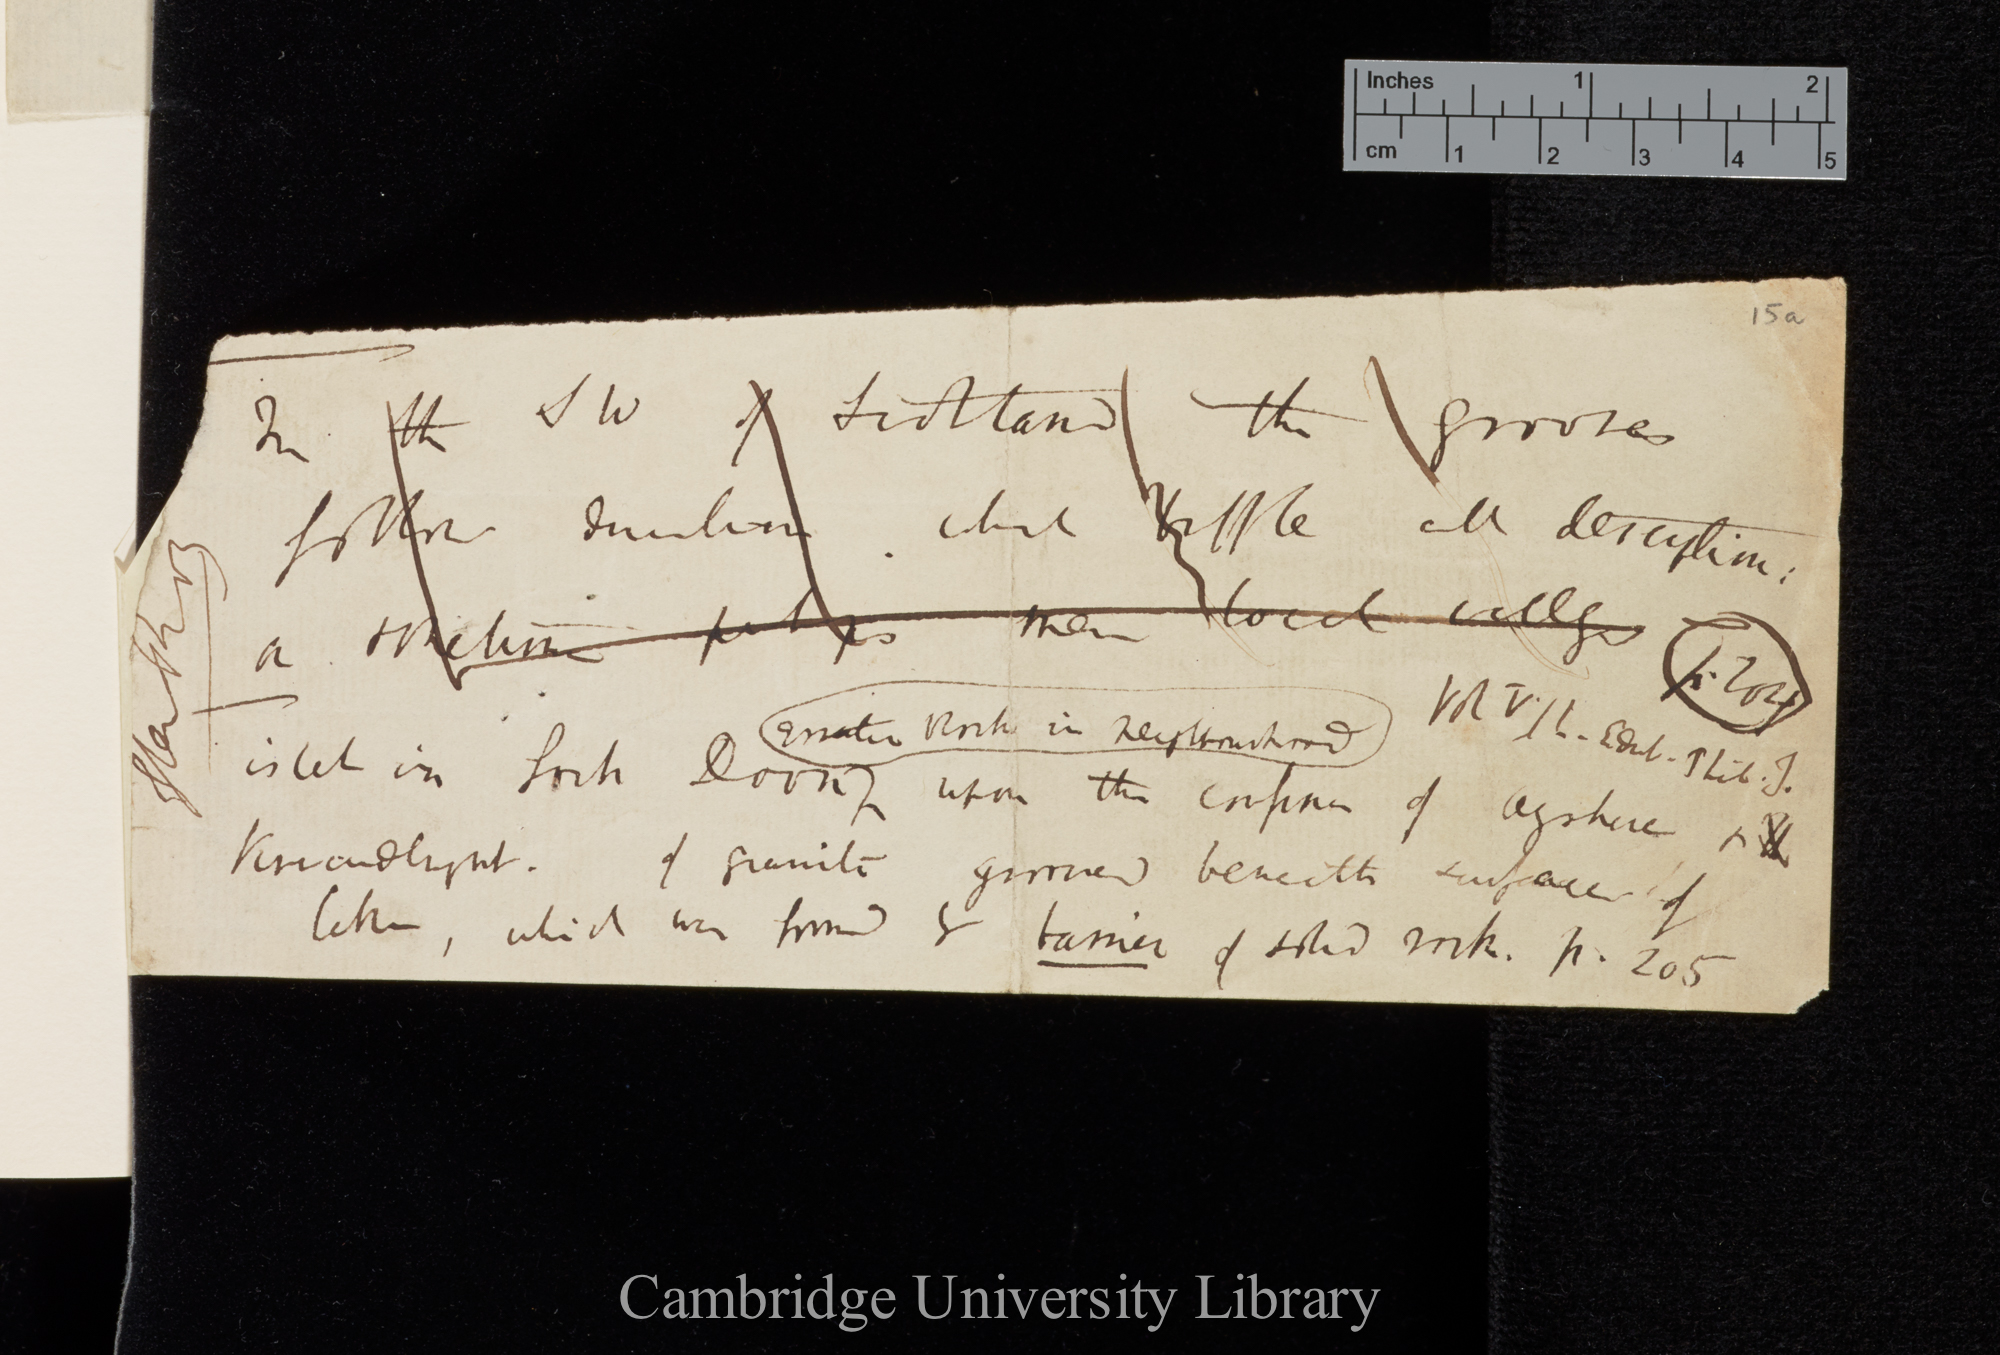 Inches 1 2
cm 1 2 3 4 5
15a
In the SW of Scotland the grooves
follow direction which baffle all description:
a sometime perhaps mere local valleys
p. 204
Vol V. Edinb. Phil. J.
Erratic Rock in neighbourhood
islet in Loch Doon, upon the confines of Ayrshire &
Kirkcudbright. of granite grooved beneath surface of
lake, which was formed by barrier of solid rock. p. 205
Cambridge University Library